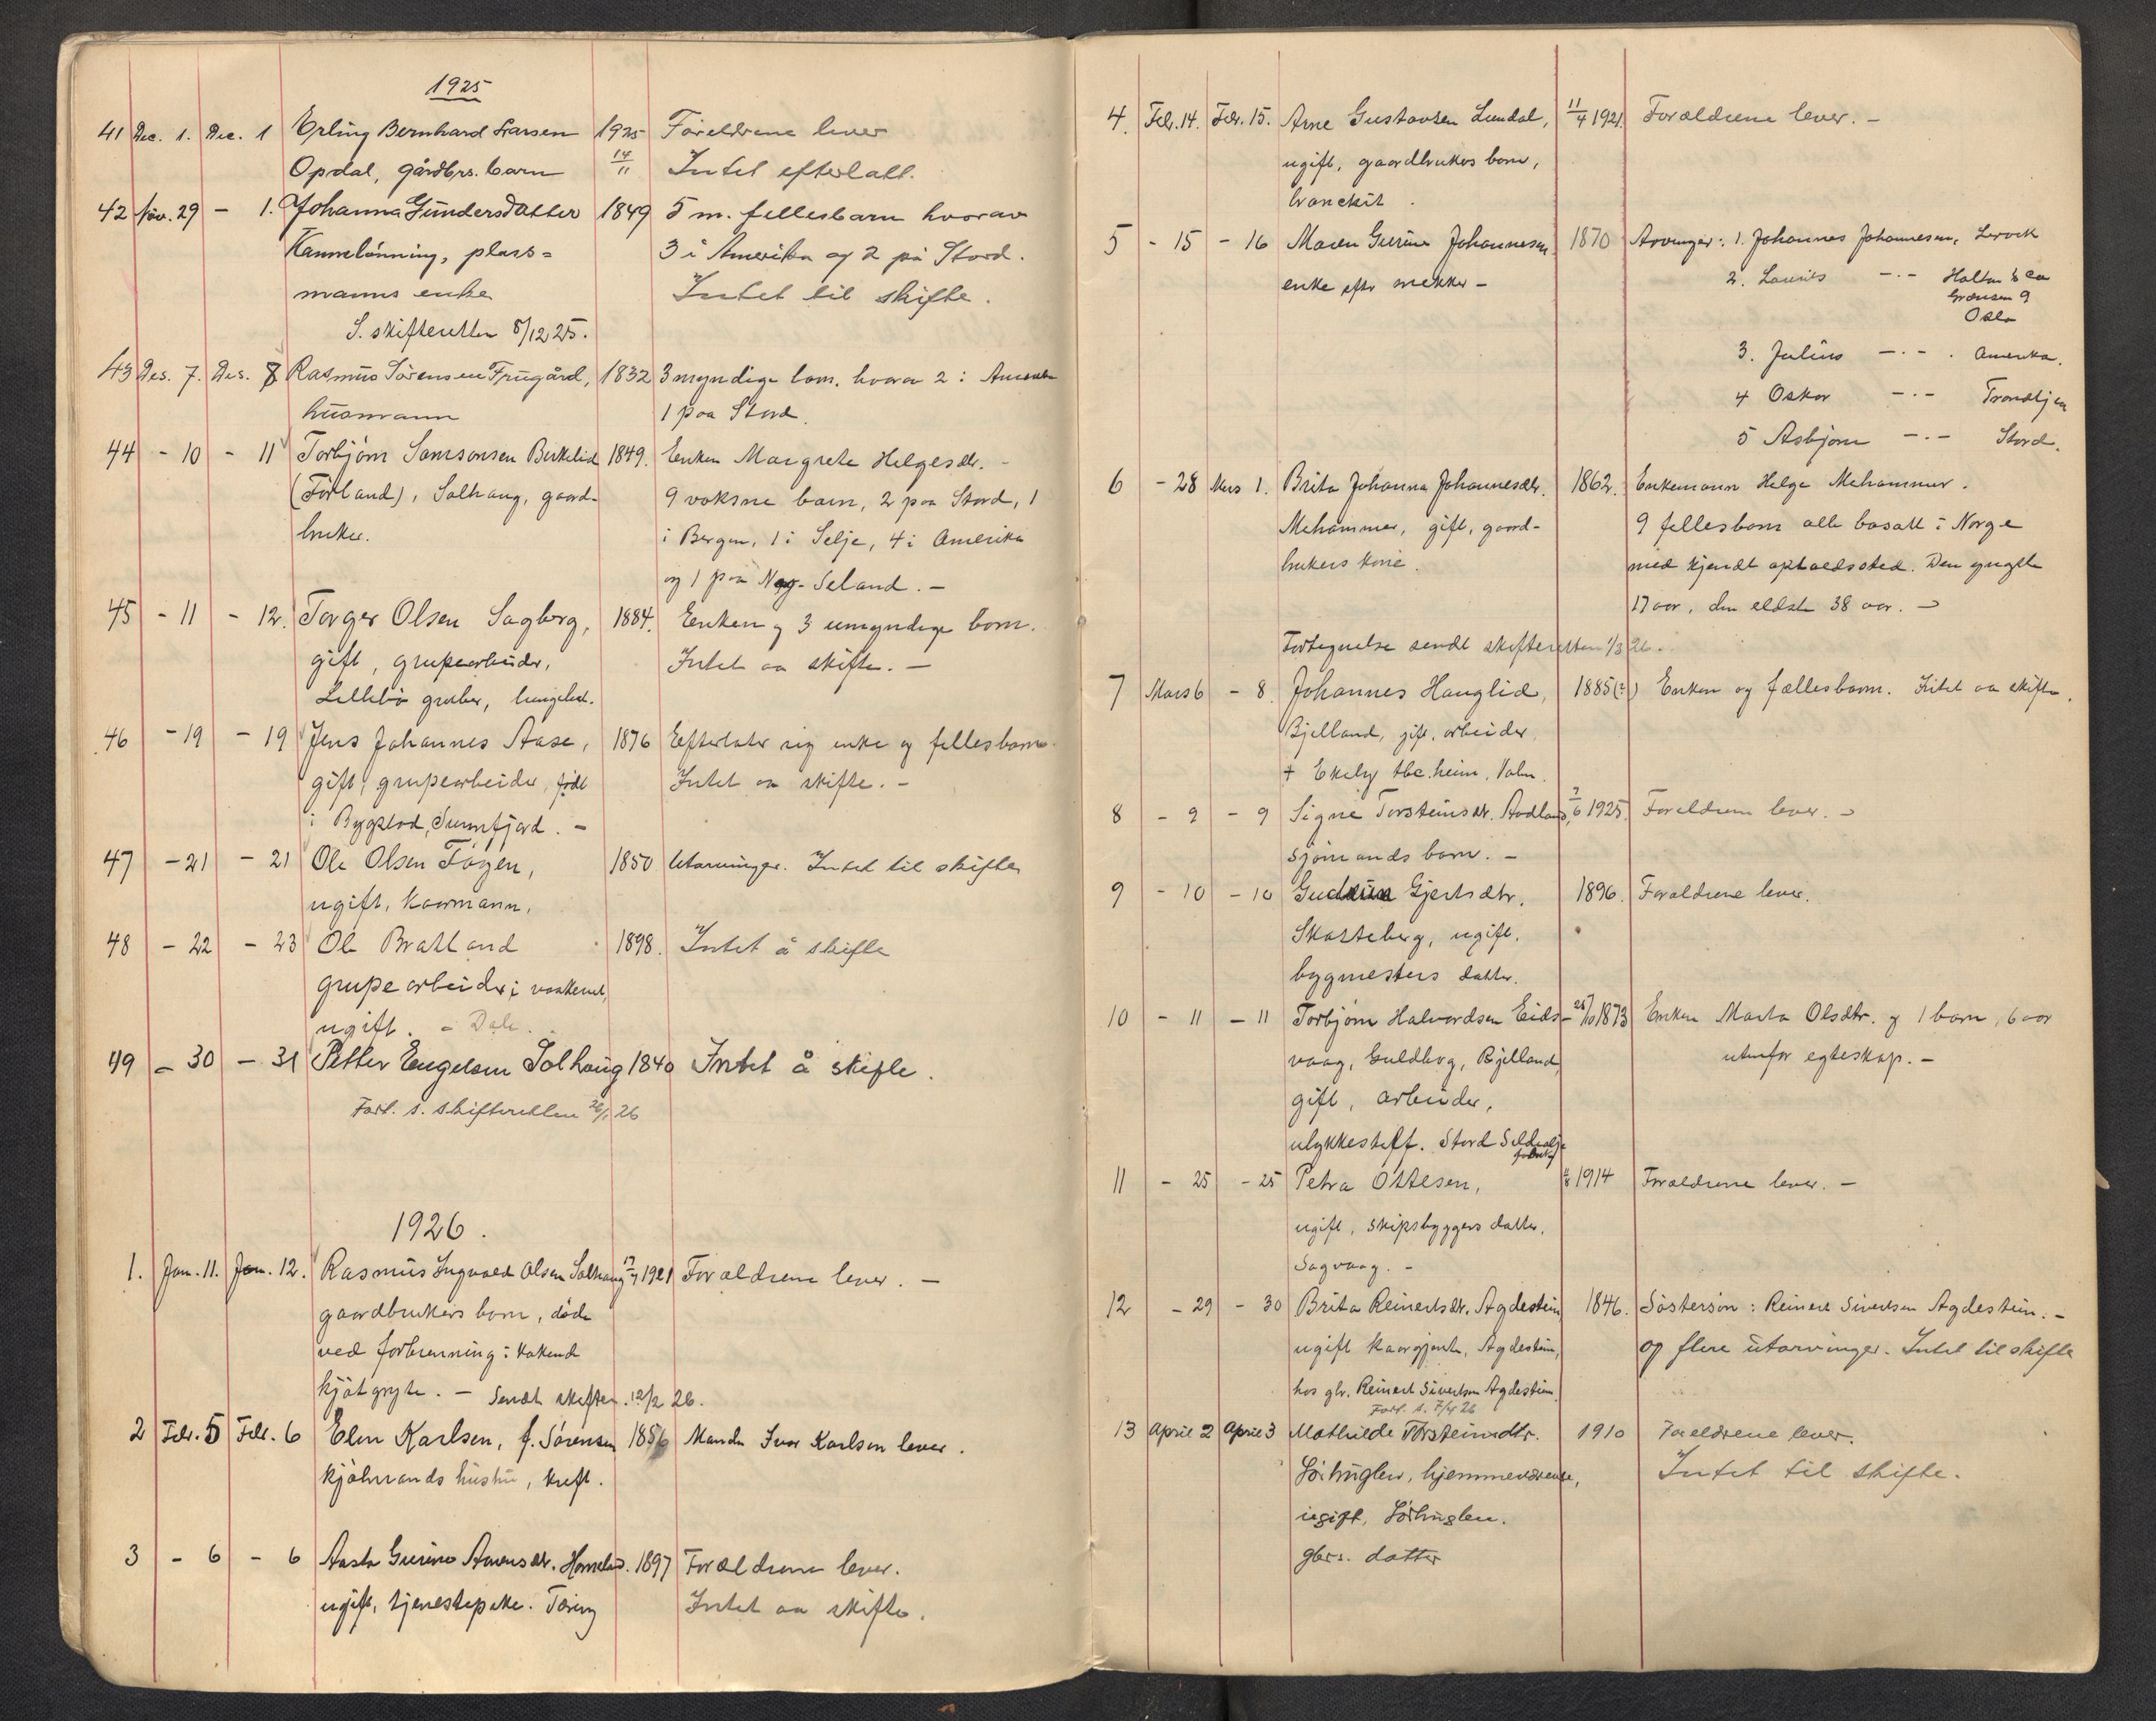 1925
41 Dec. 1. Dec. 1 Erling Bernhard Larsen 1925 Foreldrene lever
Opdal, gårdbrs. barn 14/11 Intet efterlatt.
42 Nov. 29 - 1. Johanna Gundersdatter 1849 5 m. fellesbarn hvorav
Kannelønning, plass= 3 i Amerika og 2 på Stord.
manns enke Intet til skifte.
S. skifteretten 8/12 25.
43 Des. 7. Des. 8 Rasmus Sørensen Frugård, 1832 3 myndige barn, hvorav 2 i Amerika
husmann 1 paa Stord.
44 - 10 - 11 Torbjørn Samsonsen Birkelid 1849. Enken Margrete Helgesdtr. -
(Førland), Solhaug, gaard- 9 voksne barn, 2 paa Stord, 1
bruker. i Bergen, 1 i Selje, 4 i Amerika
og 1 paa Ny-Seland. -
45 - 11 - 12. Torger Olsen Sagberg, 1884. Enken og 3 umyndige born.
gift, grupearbeider, Intet aa skifte. -
Lillebø gruber,
46 - 19 - 19 Jens Johannes Aase, 1876 Efterlater sig enke og fellesbarn.
gift, grupearbeider, født Intet aa skifte. -
i Bygstad, Sunnfjord. -
47 - 21 - 21 Ole Olsen Tøgen, 1850 Utarvinger. Intet til skifte
ugift, kaarmann,
48 - 22 - 23 Ole Bratland 1898. Intet å skifte
grupearbeider i
ugift. - Døde.
49 - 30 - 31 Petter Engelsen Solhaug 1840 Intet å skifte.
Fort. s. skifteretten 26/1 26
1926.
1. Jan. 11. Jan. 12. Rasmus Ingvald Olsen Solhaug 17/9 1921 Forældrene lever. -
gaardbrukers barn, døde
ved forbrenning i kokende
kjøtgryte. - Sendt skifter. 12/2 26.
2 Febr. 5 Febr. 6 Elen Karlsen, f. Sørensen 1856 Manden Ivar Karlsen lever.
kjøbmands hustru, kreft.
3 - 6 - 6 Aasta Gurine Amundsdtr. 1897 Forældrene lever.
ugift, tjenestepike. Tæring Intet aa skifte.
4. Febr. 14. Febr. 15. Arne Gustavsen Lundal, 11/4 1921. Forældrene lever. -
ugift, gaardbrukers barn,
bronckit.
5 - 15 - 16 Maren Gurine Johannesen 1870 Arvinger: 1. Johannes Johannesen, Lervik
enke efter snekker - 2. Laurits -.- Holtan & Co
Grensen 9
Oslo
3. Julius -.- Amerika.
4 Oskar -.- Trondhjem
5 Asbjørn -.- Stord.
6 - 28 Mars 1. Brita Johanna Johannesdtr. 1862. Enkemann Helge Mehammer.
Mehammer, gift, gaard- 9 fellesbarn alle bosatt i Norge
brukers kone. med kjendt opholdssted. Den yngste
17 aar, den eldste 38 aar. -
Fortegnelse sendt skifteretten 1/3 26.
7 Mars 6 - 8. Johannes Hauglid, 1885 (?) Enken og fællesbarn. Intet aa skifte.
Bjelland, gift, arbeider,
+ Ekely tbc. heim, Valen.
8 - 9 - 9 Signe Torsteinsdtr. Aadland, 7/6 1925. Foreldrene lever. -
sjømands barn. -
9 - 10 - 10 Gudrun Gjertsdtr. 1896. Forældrene lever.
Skarteberg, ugift.
bygmesters datter.
10 - 11 - 11 Torbjørn Halvordsen Eids- 25/10 1873 Enken Marta Olsdtr. og 1 barn, 6 aar
vaag, Guldberg, Bjelland, utenfor egteskap. -
gift, arbeider,
ulykkestilf. Stord Sildolje
fabrik
11 - 25 - 25 Petra Ottesen, 1914 Forældrene lever. -
ugift, skipsbyggers datter,
Sagvaag. -
12 - 29 - 30 Brita Reinertsdtr. Agdestein 1846. Søstersøn: Reinert Sivertsen Agdestein. -
ugift kaargjente, Agdestein, og flere utarvinger. Intet til skifte
hos gbr. Reinert Sivertsen Agdestein.
Fort. s. 7/4 26
13 April 2 April 3 Mathilde Torsteinsdtr. 1910 Foreldrene lever.
Sørhuglen, hjemmeværende, Intet til skifte.
ugift, Sørhuglen.
gbrs. datter